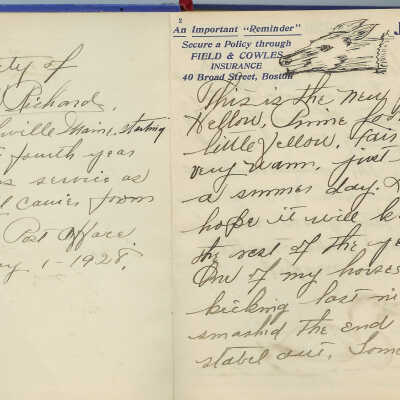 ty of
Richard,
ville Maine, starting
fourth year
s service as
l carrier from
Post Office
y 1-1928.
2
An Important "Reminder"
Secure a Policy through
FIELD & COWLES
INSURANCE
40 Broad Street, Boston
J
This is the new
Hellow, fine
little fellow, fair
very warm, just
a summer day.
hope it will k
the rest of the ye
One of my horses
kicking last ni
smashed the end
stabel out. Some